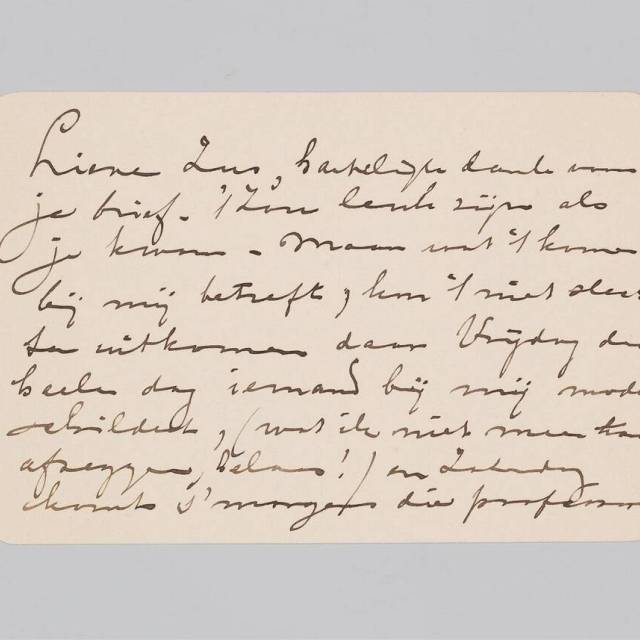 Lieve Zus, hartelijke dank voor
je brief. 't Zou leuk zijn als
je kwam. - Maar wat 't komen
bij mij betreft, kon 't niet slech
ter uitkomen daar Vrijdag de
heele dag iemand bij mij mode
schildert, (wat ik niet meer kan
afzeggen, helaas!) en Zaterdag
komt s' morgens die professor